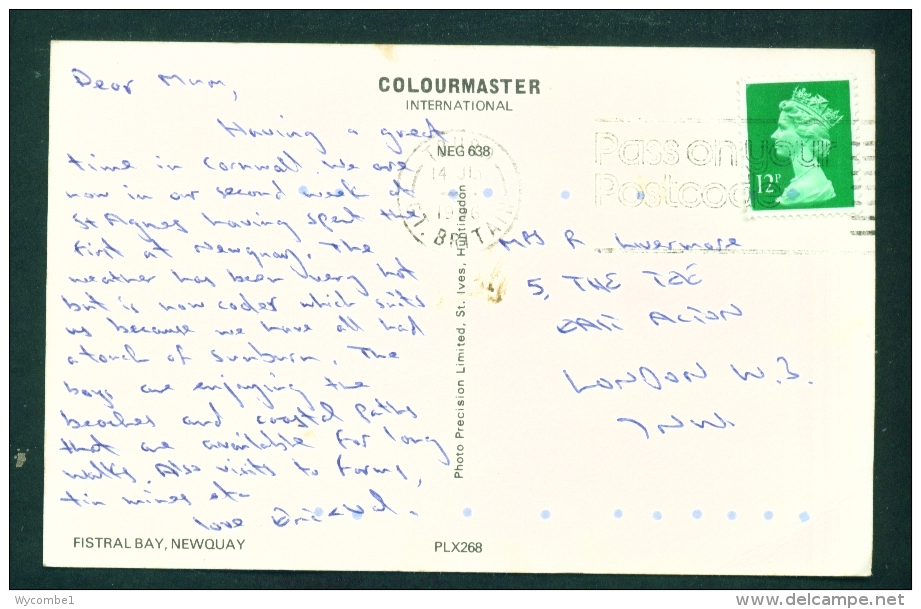 Dear Mum,
Having a great
time in Cornwall. We are
now in our second week at
St Agnes having spent the
first at Newquay. The
weather has been very hot
but is now cooler which suits
us because we have all had
a touch of sunburn. The
boys are enjoying the
beaches and coastal paths
that are available for long
walks. Also visits to farms,
tin mines etc
love
FISTRAL BAY, NEWQUAY
COLOURMASTER
INTERNATIONAL
NEG 638
Photo Precision Limited, St. Ives, Huntingdon
PLX268
14 JLY
Pass on your
Postcode
12P
Mrs R. Livermore
5, THE TEE
EAST ACTON
LONDON W.3.
7NW.
Wycombe1
www.delcampe.net